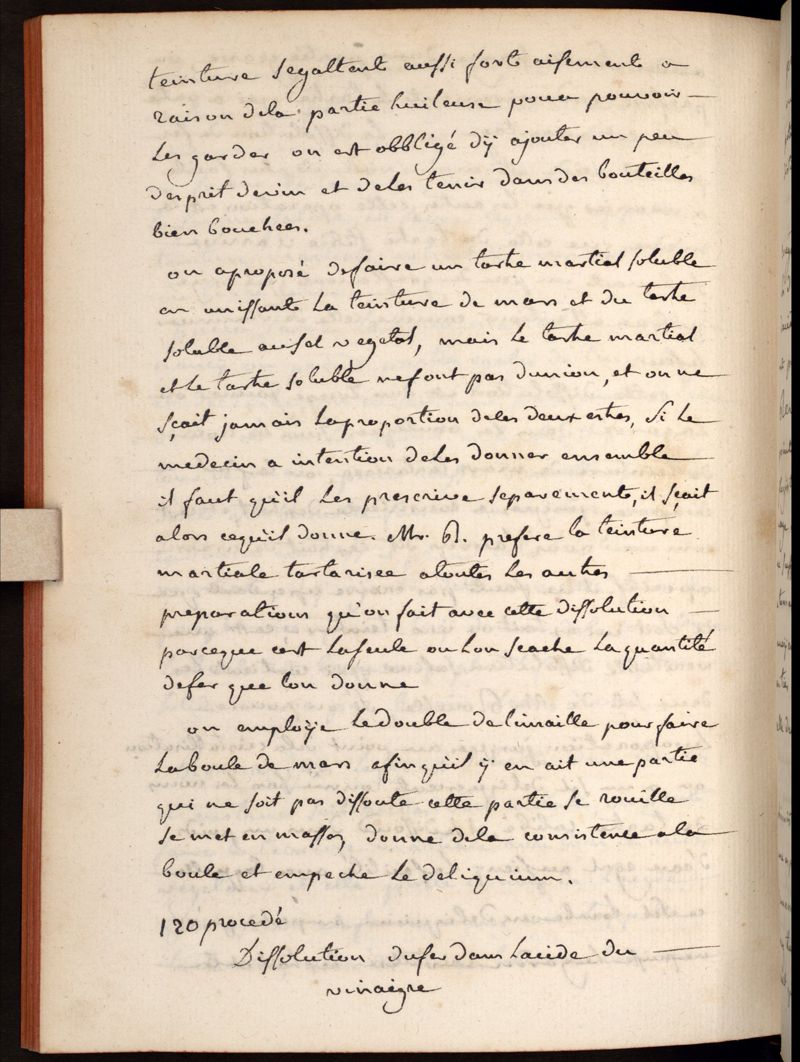 teinture segaltent aussi fort aisement a
raison dela partie huileuse pour pouvoir —
les garder on est obbligé dÿ ajouter un peu
desprit devin et deles tenir dans des bouteilles
bien bouchees.
on aproposé defaire un tartre martial soluble
en unissant la teinture de mars et du tartre
soluble ausel vegetal, mais le tartre martial
et le tartre soluble nefont pas dunion, et on ne
sçait jamais laproportion deles deux , si le
medecin a intention deles donner ensemble
il faut qu'il les prescrive separement, il sçait
alors cequil donne. Mr. B. prefere la teinture
martiale tartarisee atoutes les autres —
preparations qu'on fait avec cette dissolution —
parceque cest laseule ou lon scache laquantité
defer que lon donne
on emploÿe ledouble delimaille pour faire
laboule de mars afinquil ÿ en ait une partie
qui ne soit pas dissoute cette partie se rouille
se met en masse, donne dela consistence ala
boule et empeche le deliquium.
120 procedé
Dissolution dufer dans lacide du —
vinaigre